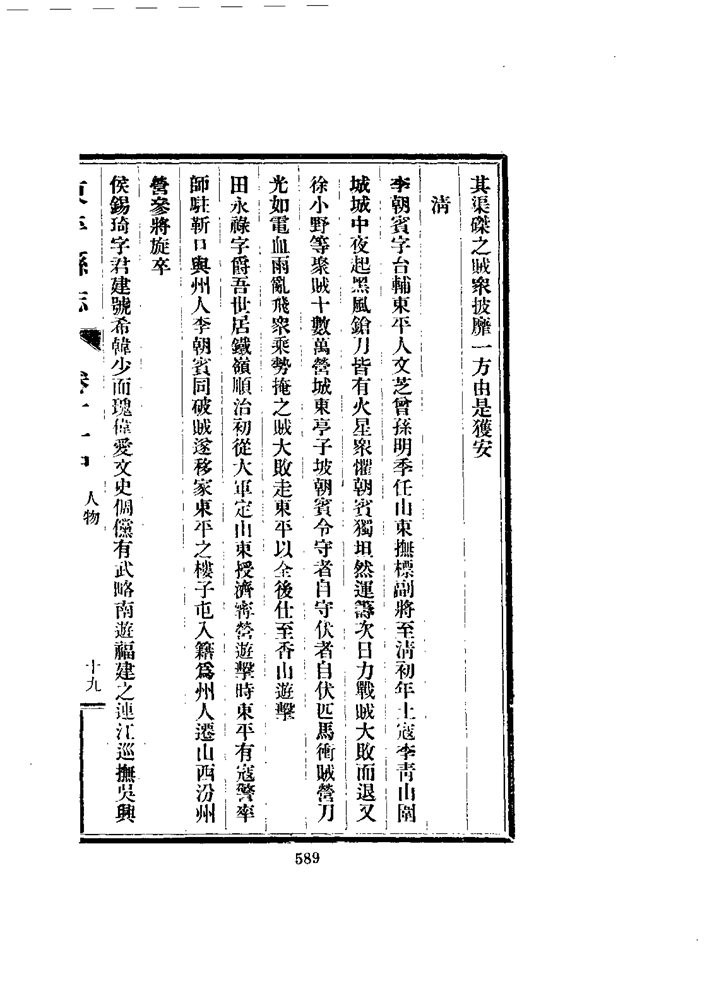 其渠磔之賊衆披靡一方由是獲安
清
李朝賓字台輔東平人文芝曾孫明季任山東撫標副將至清初年土寇李青山圍
城城中夜起黑風鎗刀皆有火星衆懼朝賓獨坦然運籌次日力戰賊大敗而退又
徐小野等聚賊十數萬營城東亭子坡朝賓令守者自守伏者自伏匹馬衝賊營刀
光如電血雨亂飛衆乘勢掩之賊大敗走東平以全後仕至香山遊擊
田永祿字爵吾世居鐵嶺順治初從大軍定山東授濟寧營遊擊時東平有寇警率
師駐靳口與州人李朝賓同破賊遂移家東平之樓子屯入籍爲州人遷山西汾州
營參將旋卒
侯錫琦字君建號希韓少而瑰偉愛文史倜儻有武略南遊福建之連江巡撫吳興
東平縣志
卷十一中
人物
十九
589